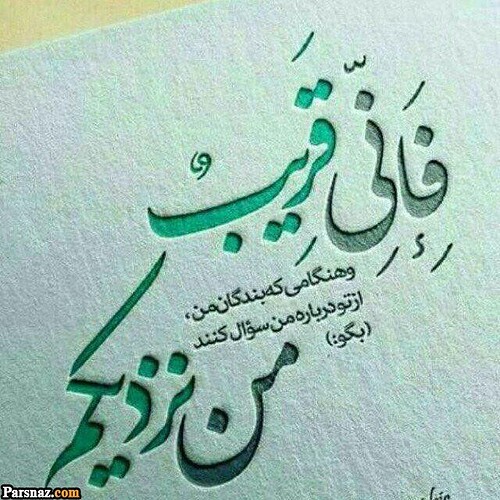 فَإِنِّی قَرِیبٌ
و هنگامی که بندگان من،
از تو درباره من سؤال کنند
(بگو:)
من نزدیکم
Parsnaz.com